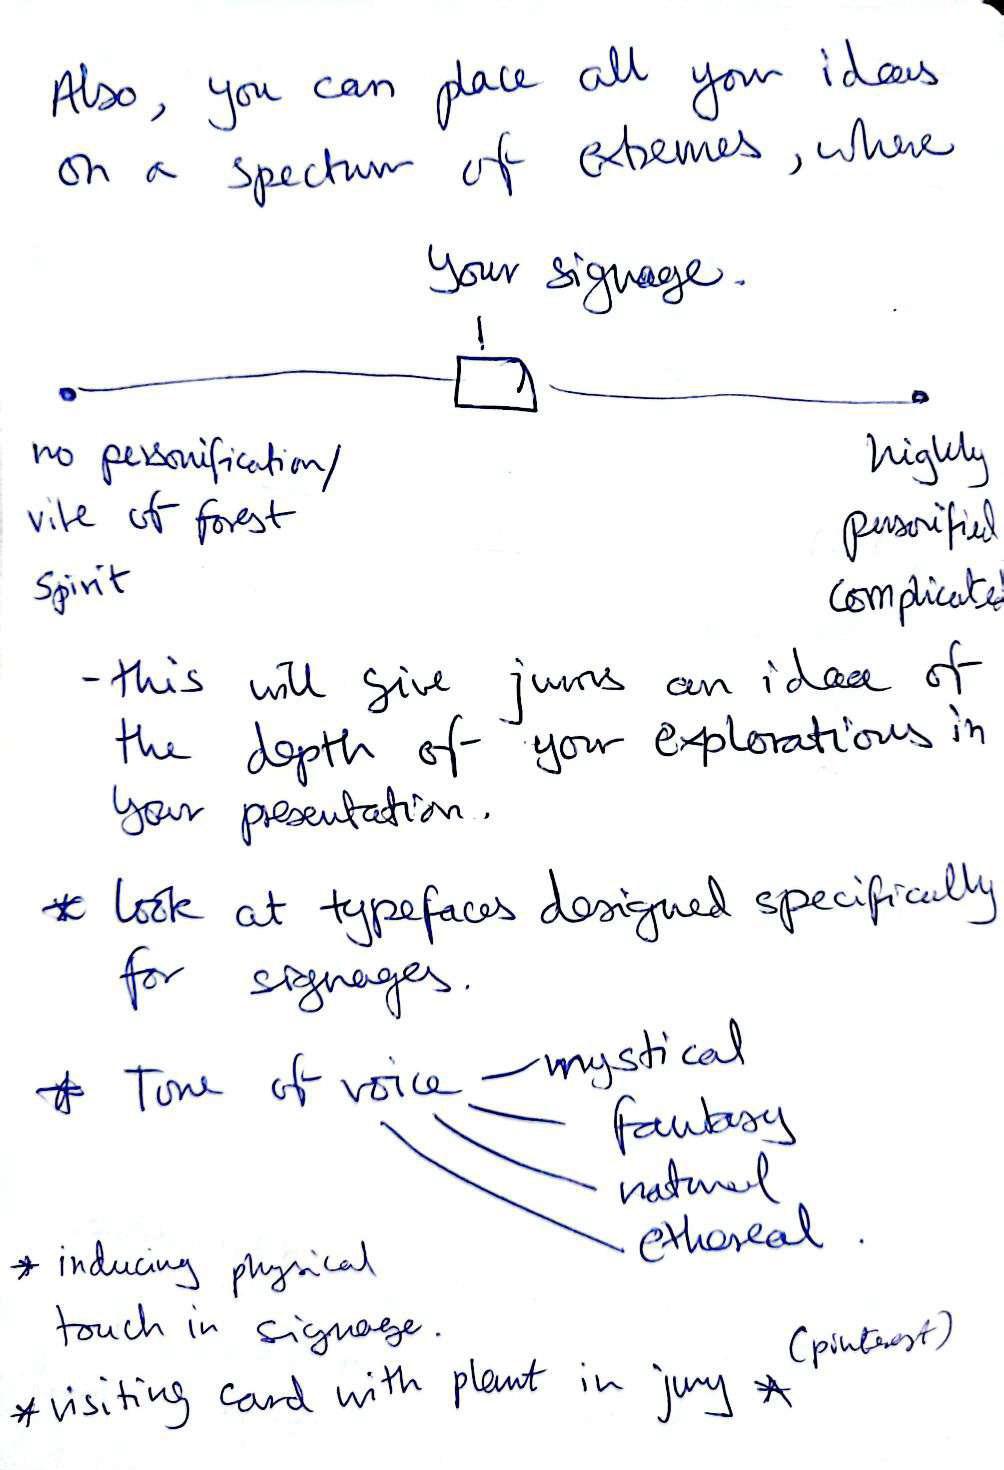 Also, you can place all your ideas
on a spectrum of extremes, where
your signage.
no personification/
vibe of forest
spirit
highly
personified
complicated
- this will give jurors an idea of
the depth of your explorations in
your presentation.
* Look at typefaces designed specifically
for signages.
* Tone of voice
mystical
fantasy
natural
ethereal.
* inducing physical
touch in signage.
* visiting card with plant in jury * (pinterest)